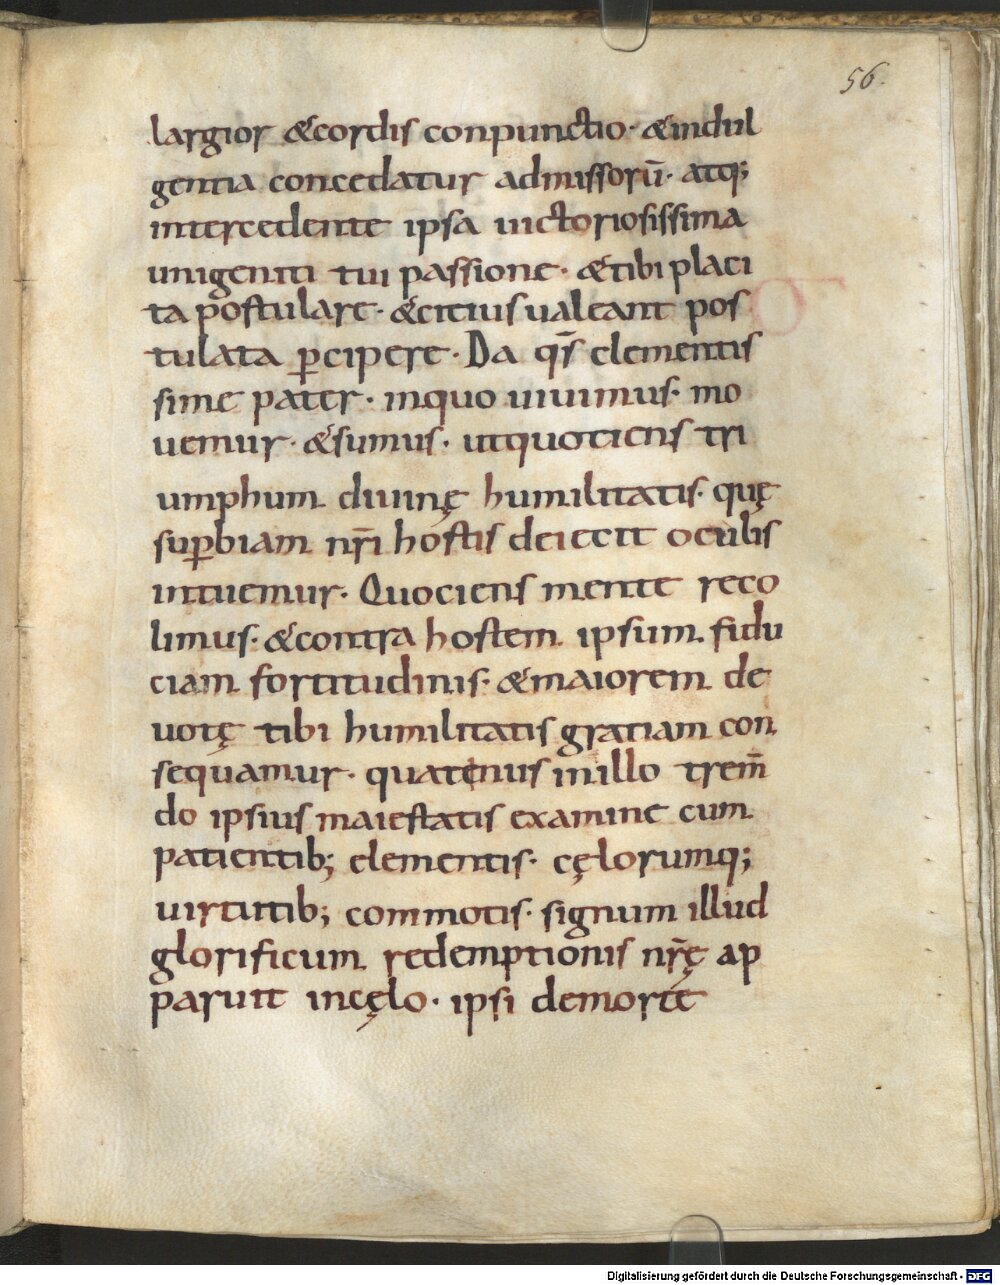 56.
largior &cordis conpunctio· &indul
gentia concedatur admissorū· atq;
intercedente ipsa uictoriosissima
unigeniti tui passione· &tibi placi
ta postulare· &citius ualeant pos
tulata ꝑcipere· Da qs̄ clementis
sime pater· inquo uiuimus· mo
uemur· &sumus· utquotiens tri
umphum diuinę humilitatis· quę
suꝑbiam nr̄i hostis deiecit oculis
intuemur· Quociens mente reco
limus· &contra hostem ipsum fidu
ciam fortitudinis· &maiorem de
uotę tibi humilitatis gratiam con
sequamur· quatenus inillo trem̄
do ipsius maiestatis examine cum
patientib; elementis· cęlorumq;
uirtutib; commotis· signum illud
glorificum redemptionis nr̄ę ap
paruit incęlo· ipsi demorte
Digitalisierung gefördert durch die Deutsche Forschungsgemeinschaft - DFG